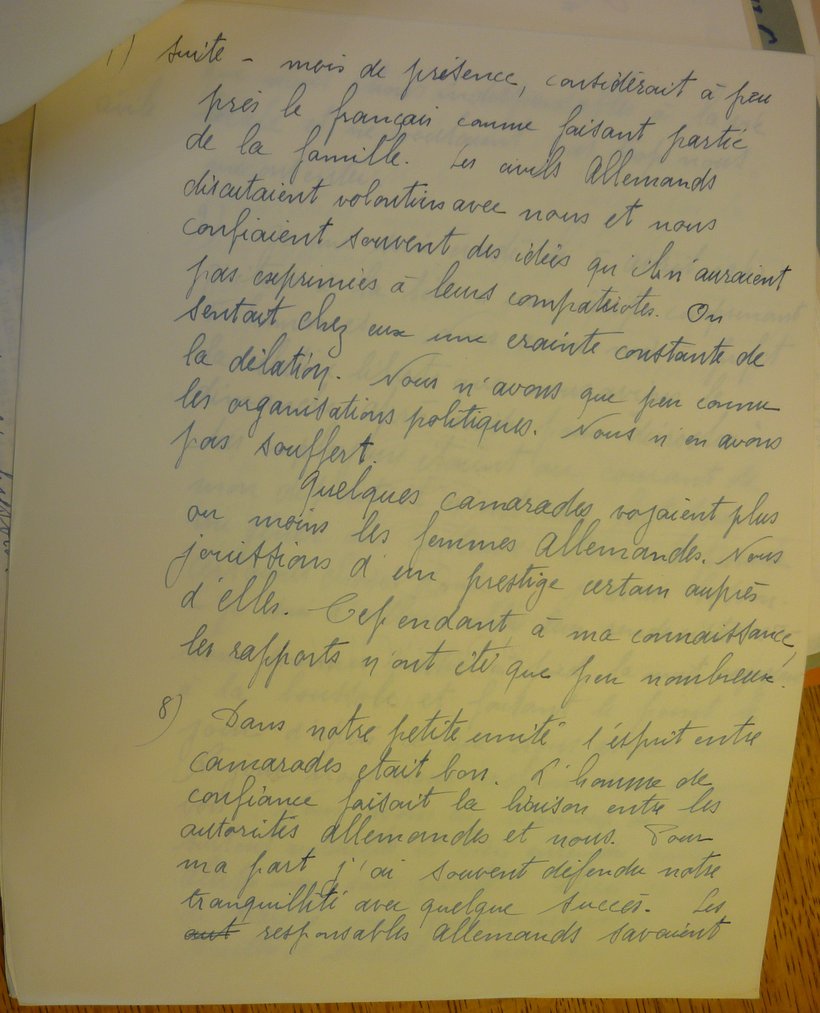 7) suite - mois de présence, considérait à peu
près le français comme faisant partie
de la famille. Les civils Allemands
discutaient volontiers avec nous et nous
confiaient souvent des idées qu'ils n'auraient
pas exprimées à leurs compatriotes. On
sentait chez eux une crainte constante de
la délation. Nous n'avons que peu connu
les organisations politiques. Nous n'en avons
pas souffert.
Quelques camarades voyaient plus
ou moins les femmes Allemandes. Nous
jouissions d'un prestige certain auprès
d'elles. Cependant à ma connaissance,
les rapports n'ont été que peu nombreux.
8) Dans notre petite unité l'esprit entre
camarades etait bon. L'homme de
confiance faisait la liaison entre les
autorités allemandes et nous. Pour
ma part j'ai souvent défendu notre
tranquillité avec quelque succès. Les
aut responsables allemands savaient